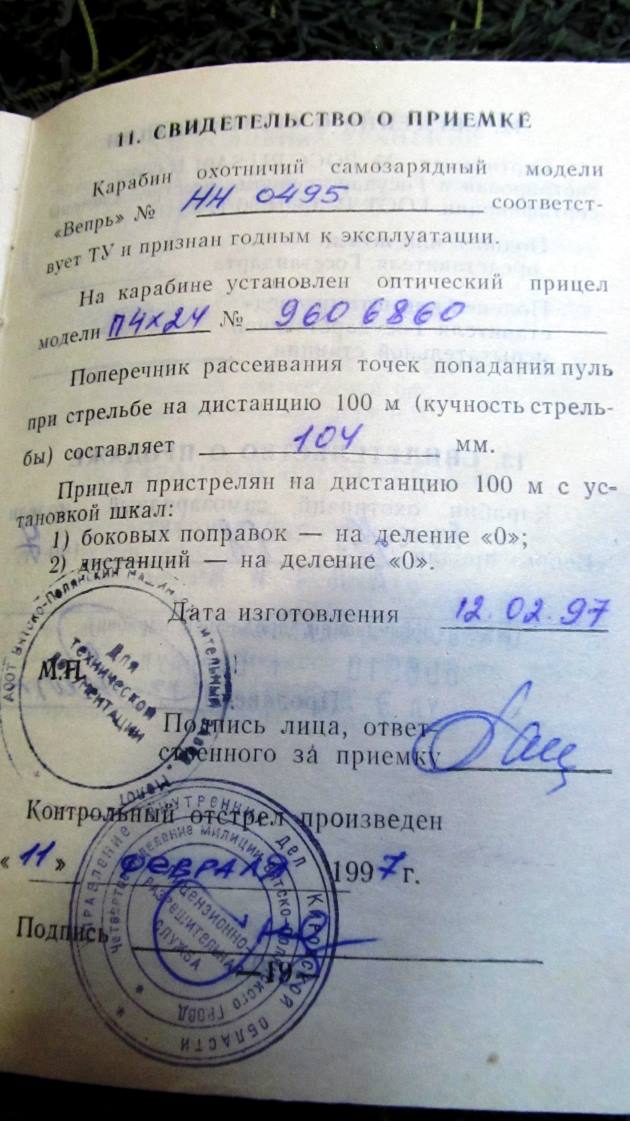 11. СВИДЕТЕЛЬСТВО О ПРИЕМКЕ
Карабин охотничий самозарядный модели
«Вепрь» № НН 0495 соответст-
вует ТУ и признан годным к эксплуатации.
На карабине установлен оптический прицел
модели П4х24 № 960 6860
Поперечник рассеивания точек попадания пуль
при стрельбе на дистанцию 100 м (кучность стрель-
бы) составляет 104 мм.
Прицел пристрелян на дистанцию 100 м с ус-
тановкой шкал:
1) боковых поправок — на деление «0»;
2) дистанций — на деление «0».
Дата изготовления 12.02.97
АООТ Вятско-Полянский машиностроительный завод "Молот"
Для
технической
документации
М.П.
Подпись лица, ответ-
ственного за приемку
Контрольный отстрел произведен
« 11 » февраля 1997 г.
Подпись
19
Управление внутренних дел Кировской области
Четвертое отделение милиции Вятско-Полянского ГРОВД
Лицензионно-
разрешительная
служба